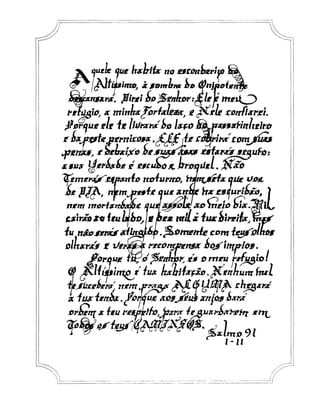 Aquele que habita no esconderijo do
Altíssimo, à sombra do Onipotente
descansará. Direi do Senhor: Ele é meu
refúgio, a minha Fortaleza, e Nele confiarei.
Porque ele te livrará do laço do passarinheiro
e da peste perniciosa. ELE te cobrirá com suas
penas, e debaixo de suas asas estarás seguro:
a sua Verdade é escudo e broquel. Não
Temerás espanto noturno, nem seta que voa
de DIA, nem peste que ande na escuridão,
nem mortandade que assole ao meio dia. Mil
cairão ao teu lado, e dez mil à tua direita, mas
tu não serás atingido. Somente com teus olhos
olharás e verás a recompensa dos ímpios.
Porque tu, ó Senhor, és o meu refúgio!
O Altíssimo é tua habitação. Nenhum mal
te sucederá, nem praga ALGUMA chegará
à tua tenda. Porque aos seus anjos dará
ordem a teu respeito, para te guardarem em
Todos os teus CAMINHOS.
Salmo 91
1-11